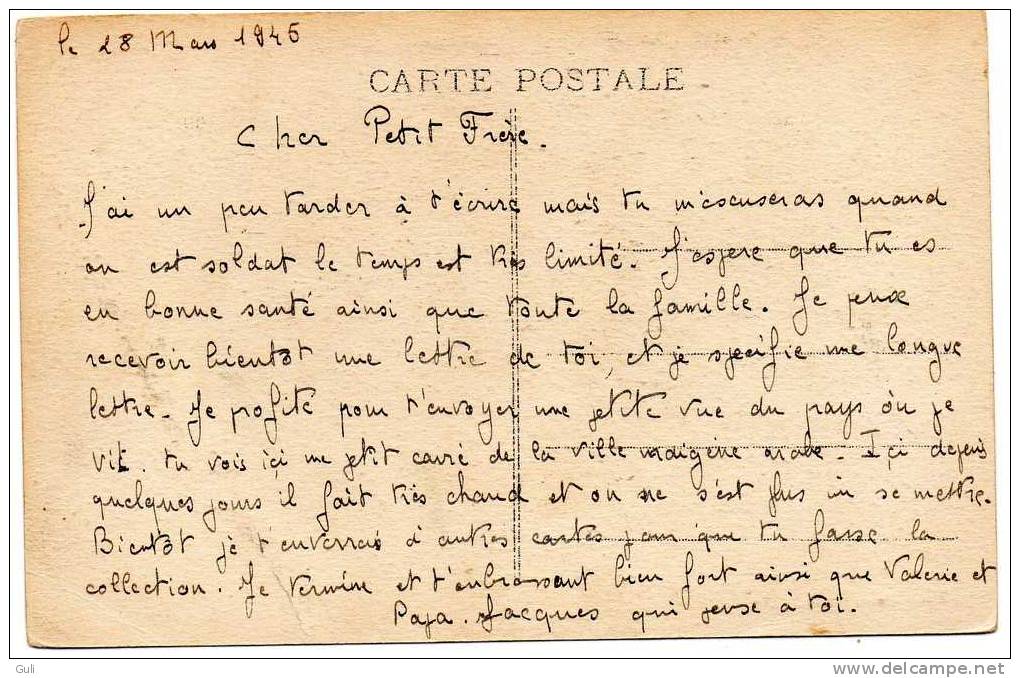 le 28 Mars 1945
CARTE POSTALE
Cher Petit Frère.
J'ai un peu tarder à t'écrire mais tu m'escuseras quand
on est soldat le temps est très limité. J'espere que tu es
en bonne santé ainsi que toute la famille. Je pense
recevoir bientôt une lettre de toi, et je specifie une longue
lettre. Je profite pour t'envoyer une petite vue du pays où je
vis. tu vois içi un petit carré de la ville indigène arabe. Içi depuis
quelques jours il fait très chaud et on ne s'est plus où se mettre.
Bientôt je t'enverrais d'autres cartes pour que tu fasse la
collection. Je termine et t'enbrassant bien fort ainsi que Valerie et
Papa. Jacques qui pense à toi.
Guli
www.delcampe.net